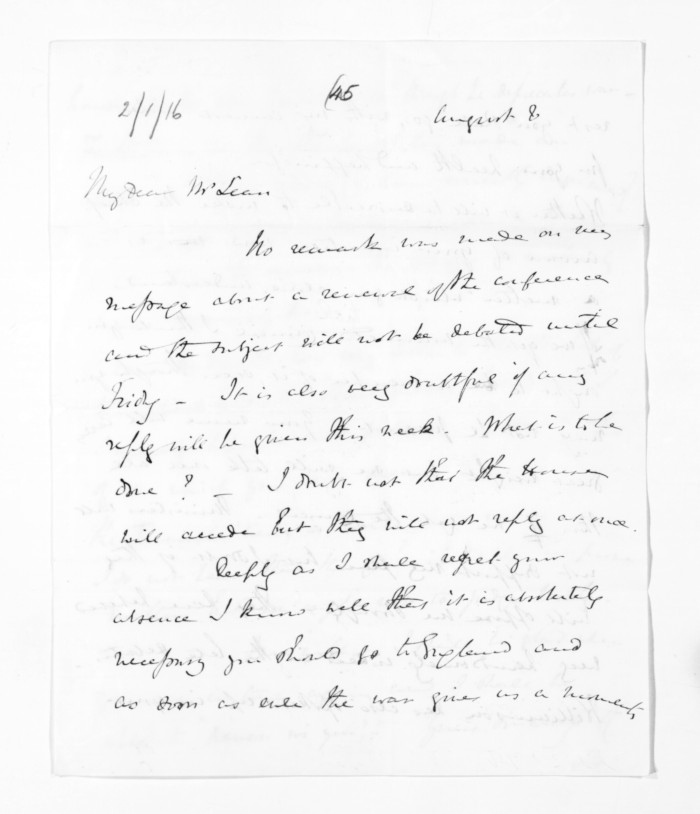 2/1/16
45
August 8
My Dear McLean
No remark was made on my
message about a renewal of the conference
and the subject will not be debated until
Friday - It is also very doubtful if any
reply will be given this week. What is to be
done? - I doubt not that the House
will accede but they will not reply at once.
Deeply as I should regret your
absence I know well that it is absolutely
necessary you should go to England and
as soon as ever the war gives us a moments